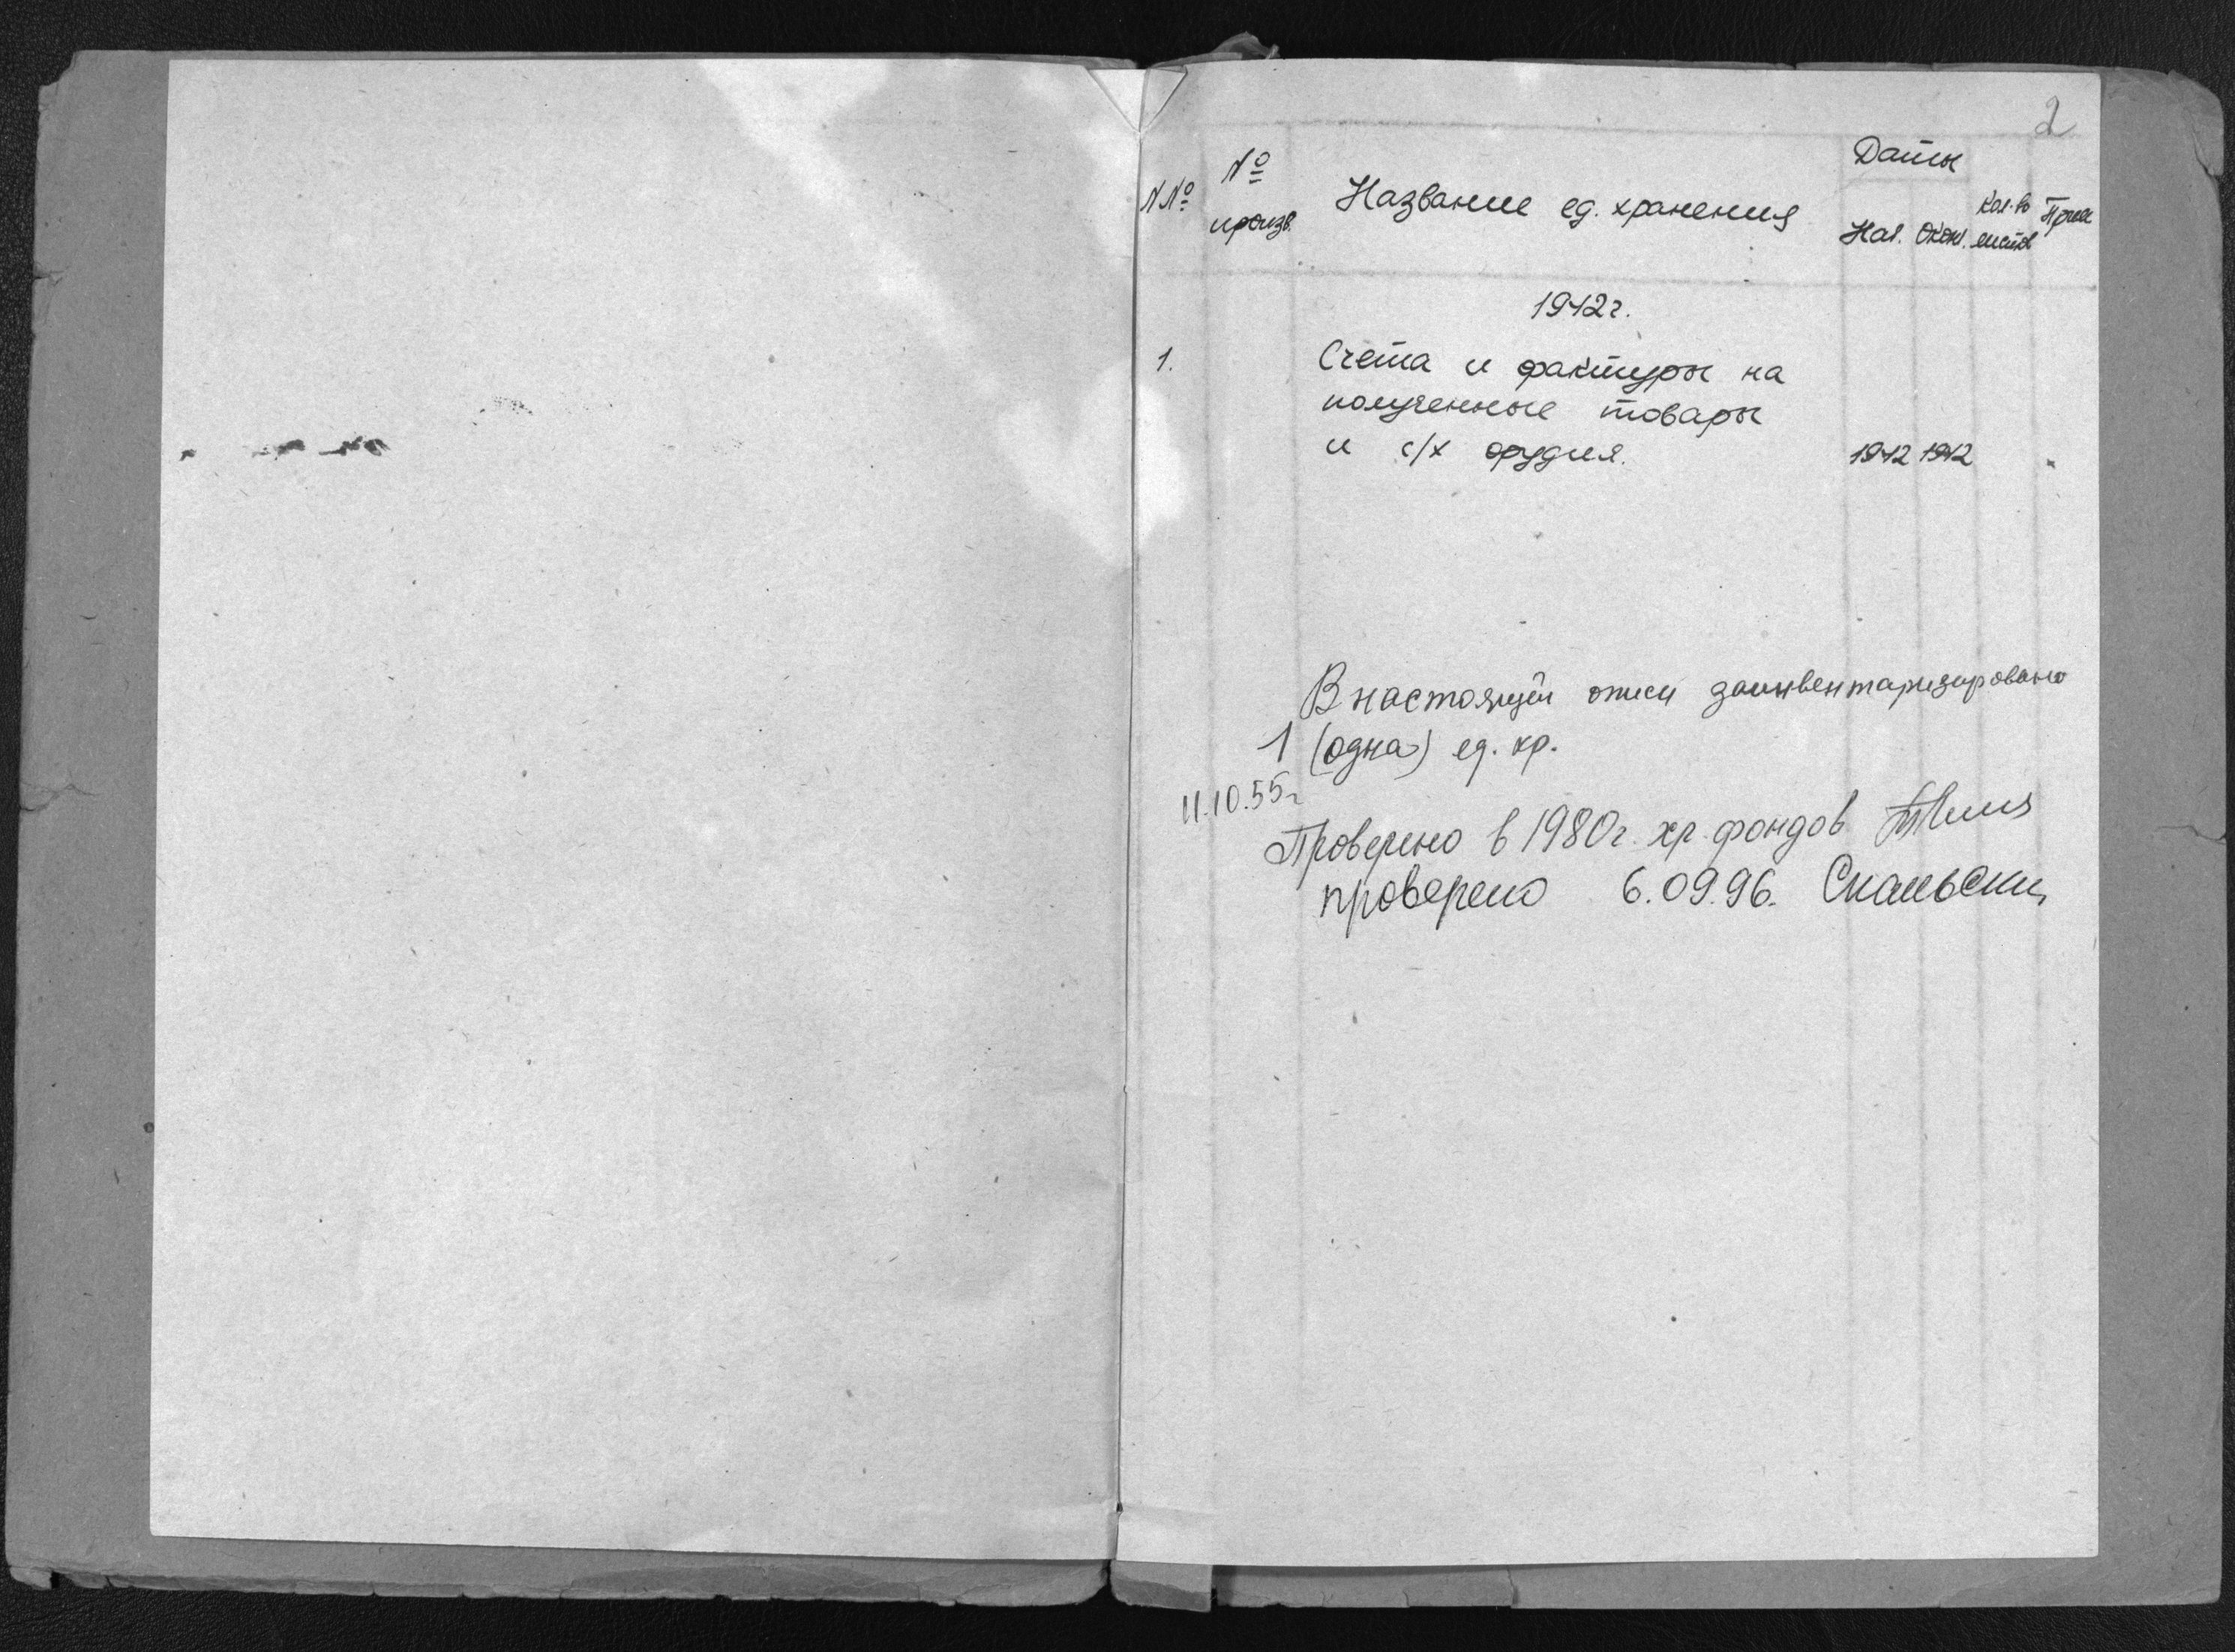 2
NNº
Nº
произв.
Название ед. хранения
Даты
Нач. Окон.
Кол-во
листов
Прим
1942 г.
1.
Счета и фактуры на
полученные товары
и с/х орудия.
1942 1942
В настоящей описи заинвентаризировано
1 (одна) ед. хр.
11.10.55г
Проверено в 1980г. хр. фондов
проверено 6.09.96.